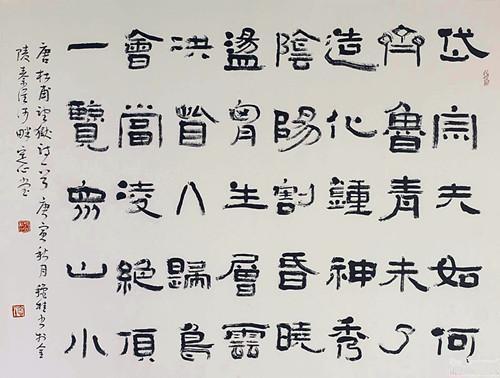 岱宗夫如何
齊魯青未了
造化鍾神秀
陰陽割昏曉
盪胷生層雲
決眥入歸鳥
會當凌絕頂
一覽眾山小
唐杜甫望嶽詩一首 庚寅秋月 書於金
陵秦淮河畔 心堂